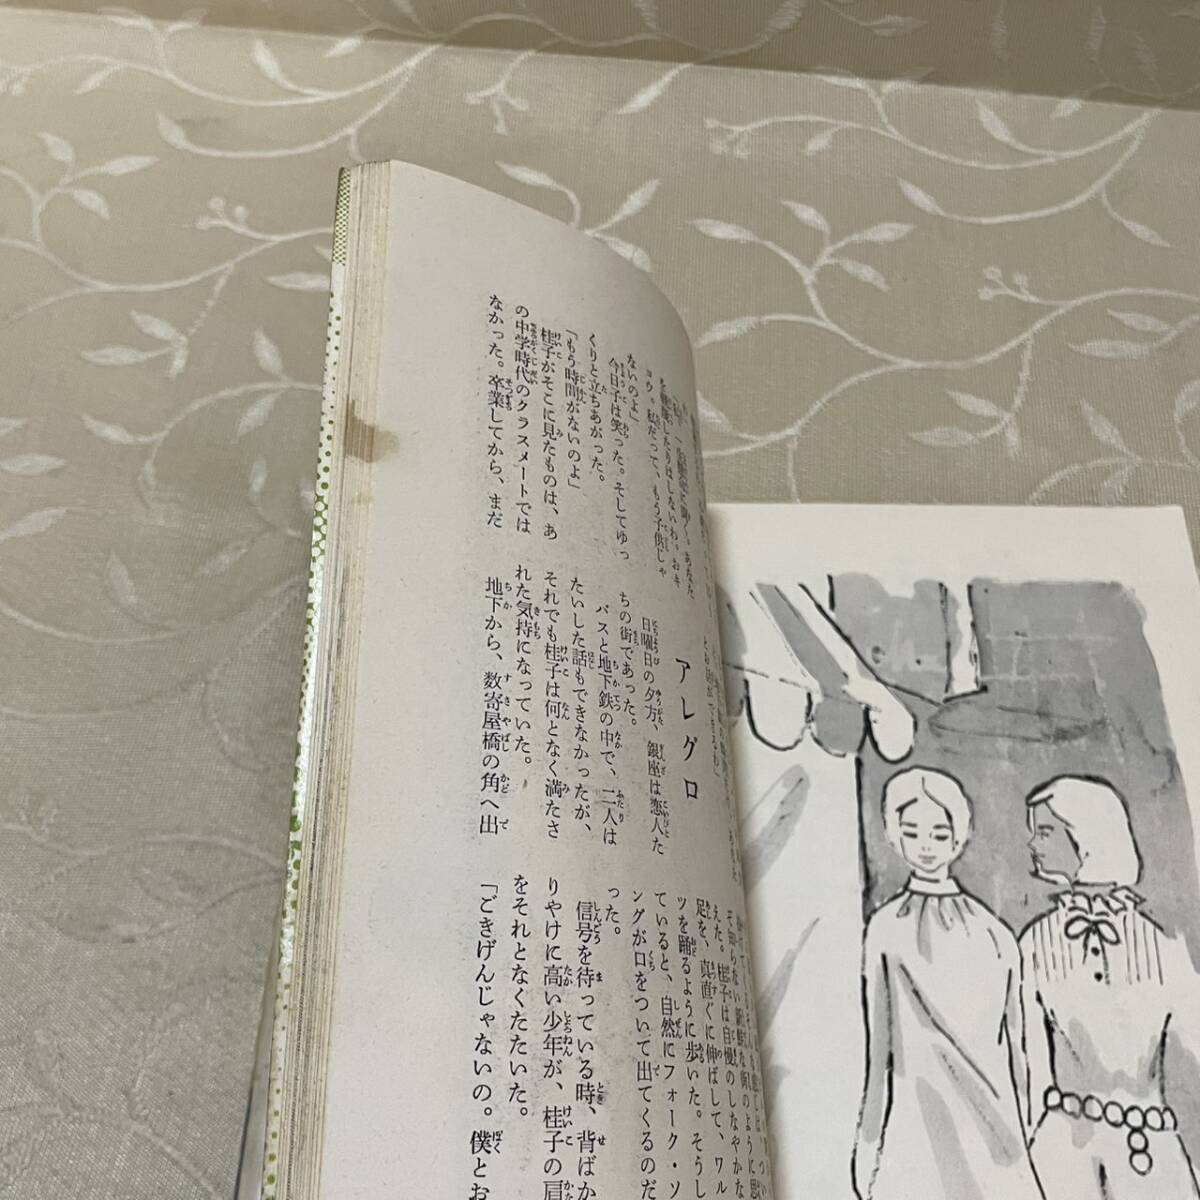 を軽蔑したりはしないわ。おキ
ョウ。私だって、もう子供じゃ
ないのよ」
今日子は笑った。そしてゆっ
くりと立ちあがった。
「もう時間がないのよ」
桂子がそこに見たものは、あ
の中学時代のクラスメートでは
なかった。卒業してから、まだ
アレグロ
日曜日の夕方、銀座は恋人た
ちの街であった。
バスと地下鉄の中で、二人は
たいした話もできなかったが、
それでも桂子は何となく満たさ
れた気持になっていた。
地下から、数寄屋橋の角へ出
えた。桂子は自慢のしなやかな
足を、真直ぐに伸ばして、ワル
ツを踊るように歩いた。そうし
ていると、自然にフォーク・ソ
ングが口をついて出てくるのだ
った。
信号を待っている時、背ばか
りやけに高い少年が、桂子の肩
をそれとなくたたいた。
「ごきげんじゃないの。僕とお